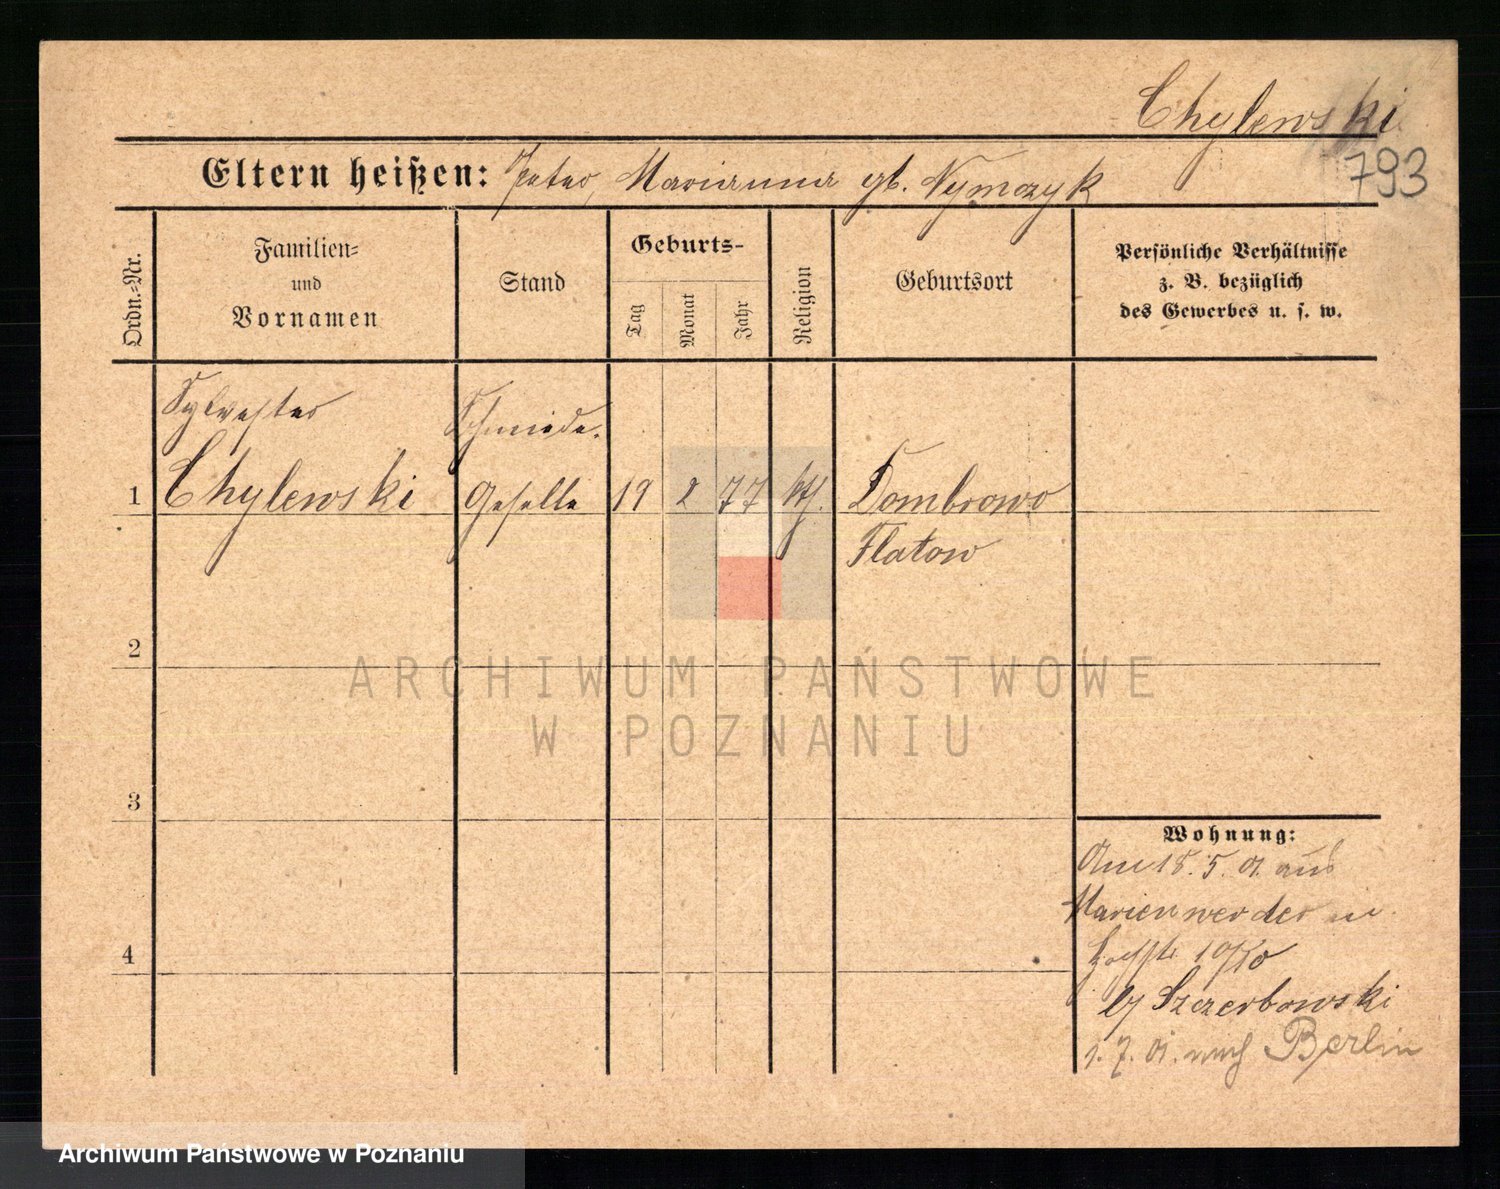 Chylewski
793
Eltern heißen: Peter, Marianna gb. Nymczyk
Ordn.=Nr.
Familien=
und
Vornamen
Stand
Geburts-
Tag
Monat
Jahr
Religion
Geburtsort
Persönliche Verhältnisse
z. B. bezüglich
des Gewerbes u. s. w.
Sylvester
Schmiede.
1 Chylewski Geselle 19 2 77 kth. Dombrowo
Flatow
2
3
4
Wohnung:
Am 18. 5. 01. aus
Marienwerder in
10/10
by Szczerbowski
1. 7. 01. nach Berlin
ARCHIWUM PAŃSTWOWE
W POZNANIU
Archiwum Państwowe w Poznaniu